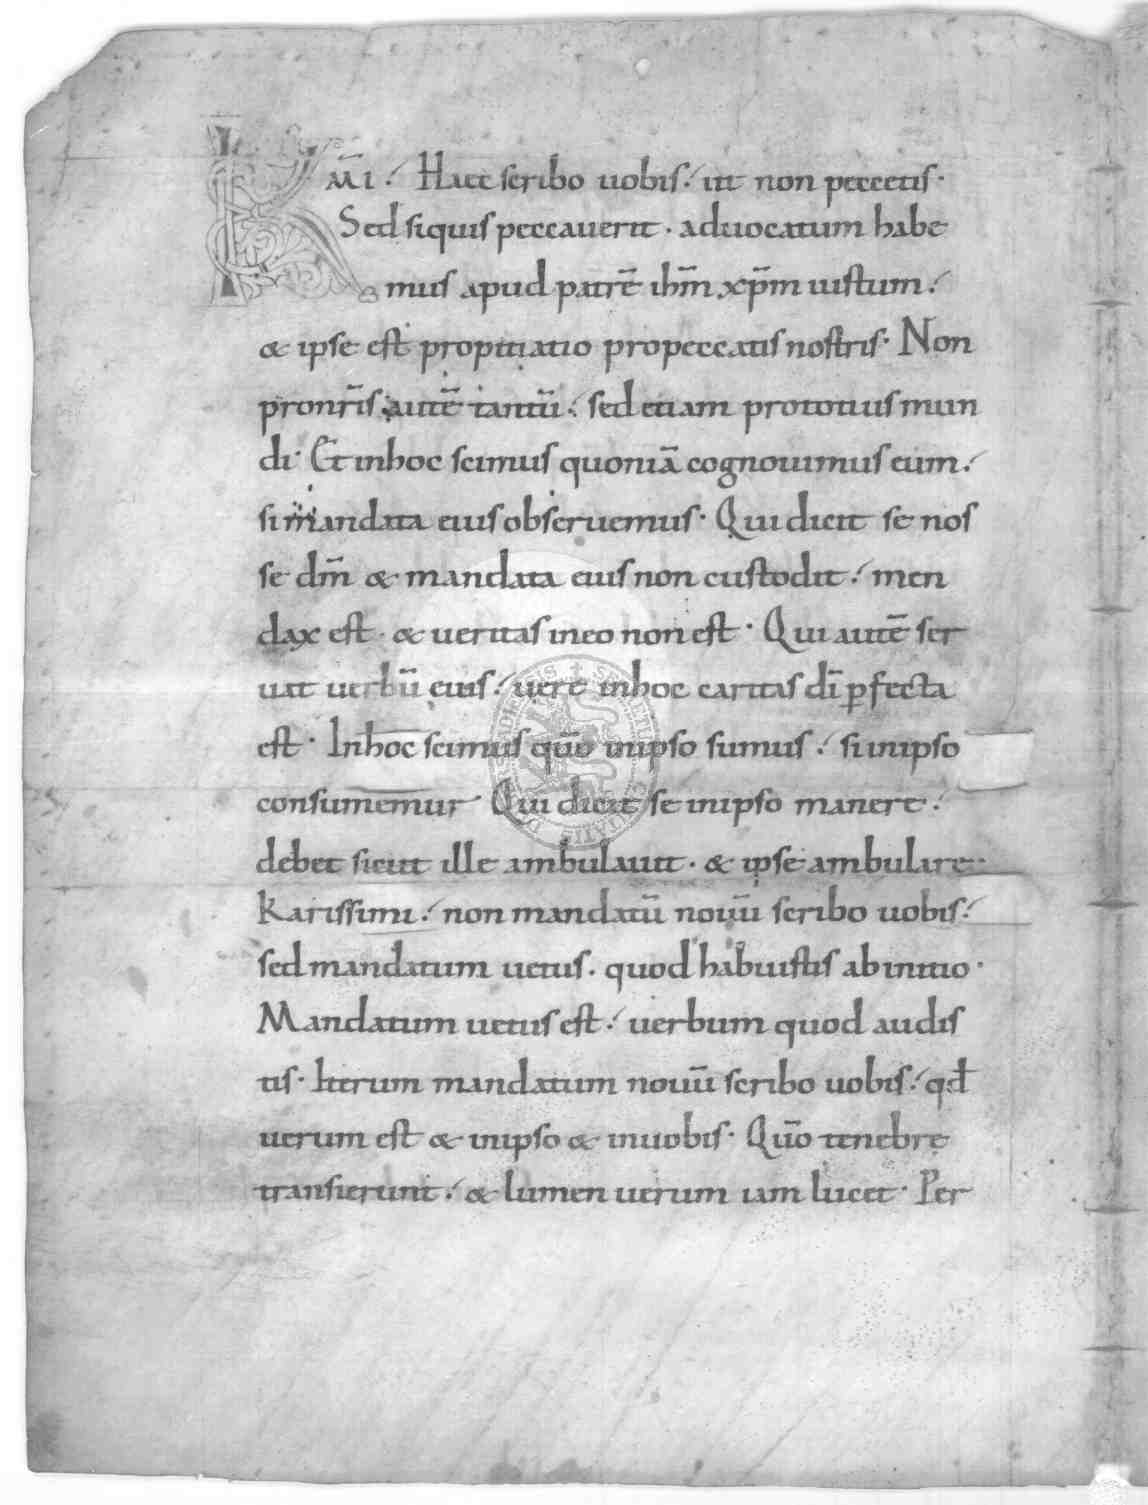 Km̅i. Haec scribo uobis. ut non peccetis.
Sed siquis peccauerit. aduocatum habe
mus apud patrē ihm̅ xp̅m iustum.
& ipse est propitiatio propeccatis nostris. Non
pronr̅is autē tantū. sed etiam prototius mun
di. Et inhoc scimus quoniā cognouimus eum.
si mandata eius obseruemus. Qui dicit se nos
se dm̅ & mandata eius non custodit. men
dax est. & ueritas ineo non est. Qui autē ser
uat uerbū eius. uere inhoc caritas di̅ ꝑfecta
est. Inhoc scimus qūo inipso sumus. si inipso
consumemur Qui dicit se inipso manere.
debet sicut ille ambulauit. & ipse ambulare.
Karissimi. non mandatū nouū scribo uobis.
sed mandatum uetus. quod habuistis abinitio.
Mandatum uetus est. uerbum quod audis
tis. Iterum mandatum nouū scribo uobis. qđ
uerum est & inipso & inuobis. Qūo tenebrę
transierunt. & lumen uerum iam lucet. Per